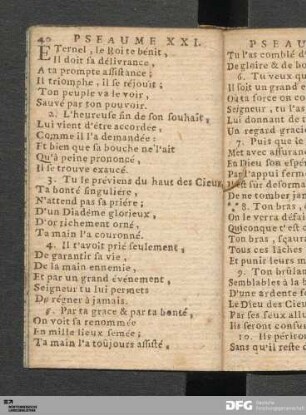 40 PSEAUME XXI.
ETernel, le Roi te bénit,
Il doit sa délivrance,
A ta prompte assistance;
Il triomphe, il se réjouit;
Ton peuple va le voir,
Sauvé par ton pouvoir.
2. L'heureuse fin de son souhait,
Lui vient d'être accordée,
Comme il l'a demandée:
Et bien que sa bouche ne l'ait
Qu'à peine prononcé,
Il se trouve exaucé.
3. Tu le préviens du haut des Cieux,
Ta bonté singuliere,
N'attend pas sa priére;
D'un Diadême glorieux,
D'or richement orné,
Ta main l'a couronné.
4. Il t'avoit prié seulement,
De garantir sa vie,
De la main ennemie,
Et par un grand événement,
Seigneur tu lui permets
De régner à jamais.
5. Par ta grace & par ta bonté,
On voit sa renommée
En mille lieux semée;
Ta main l'a toûjours assisté,
PSEAU
Tu l'as comblé d'
De gloire & de bo
6. Tu veux qu
Il soit un grand e
Où ta force on co
Seigneur, tu l'as
Lui donnant de t
Un regard graci
7. Puis que le
Met avec assuran
En Dieu son espér
Par l'appui ferme
Il est sûr desorma
De ne tomber jam
8. Ton bras,
On le verra défai
Quiconque t'est c
Ton bras, sçaura
Tous ces lâches
Et punir leurs m
9. Ton brûlan
Semblables à la b
D'une ardente fo
Le Dieu des Cieu
Par ses feux allu
Ils seront consu
10. Ils périron
Sans qu'il reste
DFG